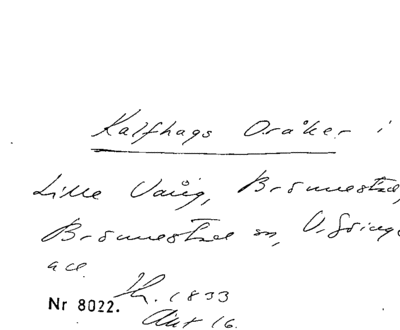 Kalfhags Oråker i
Lille Vång, Brönnestad,
Brönnestad sn, V. Göinge
acc.
Nr 8022.
1833
Akt 16.